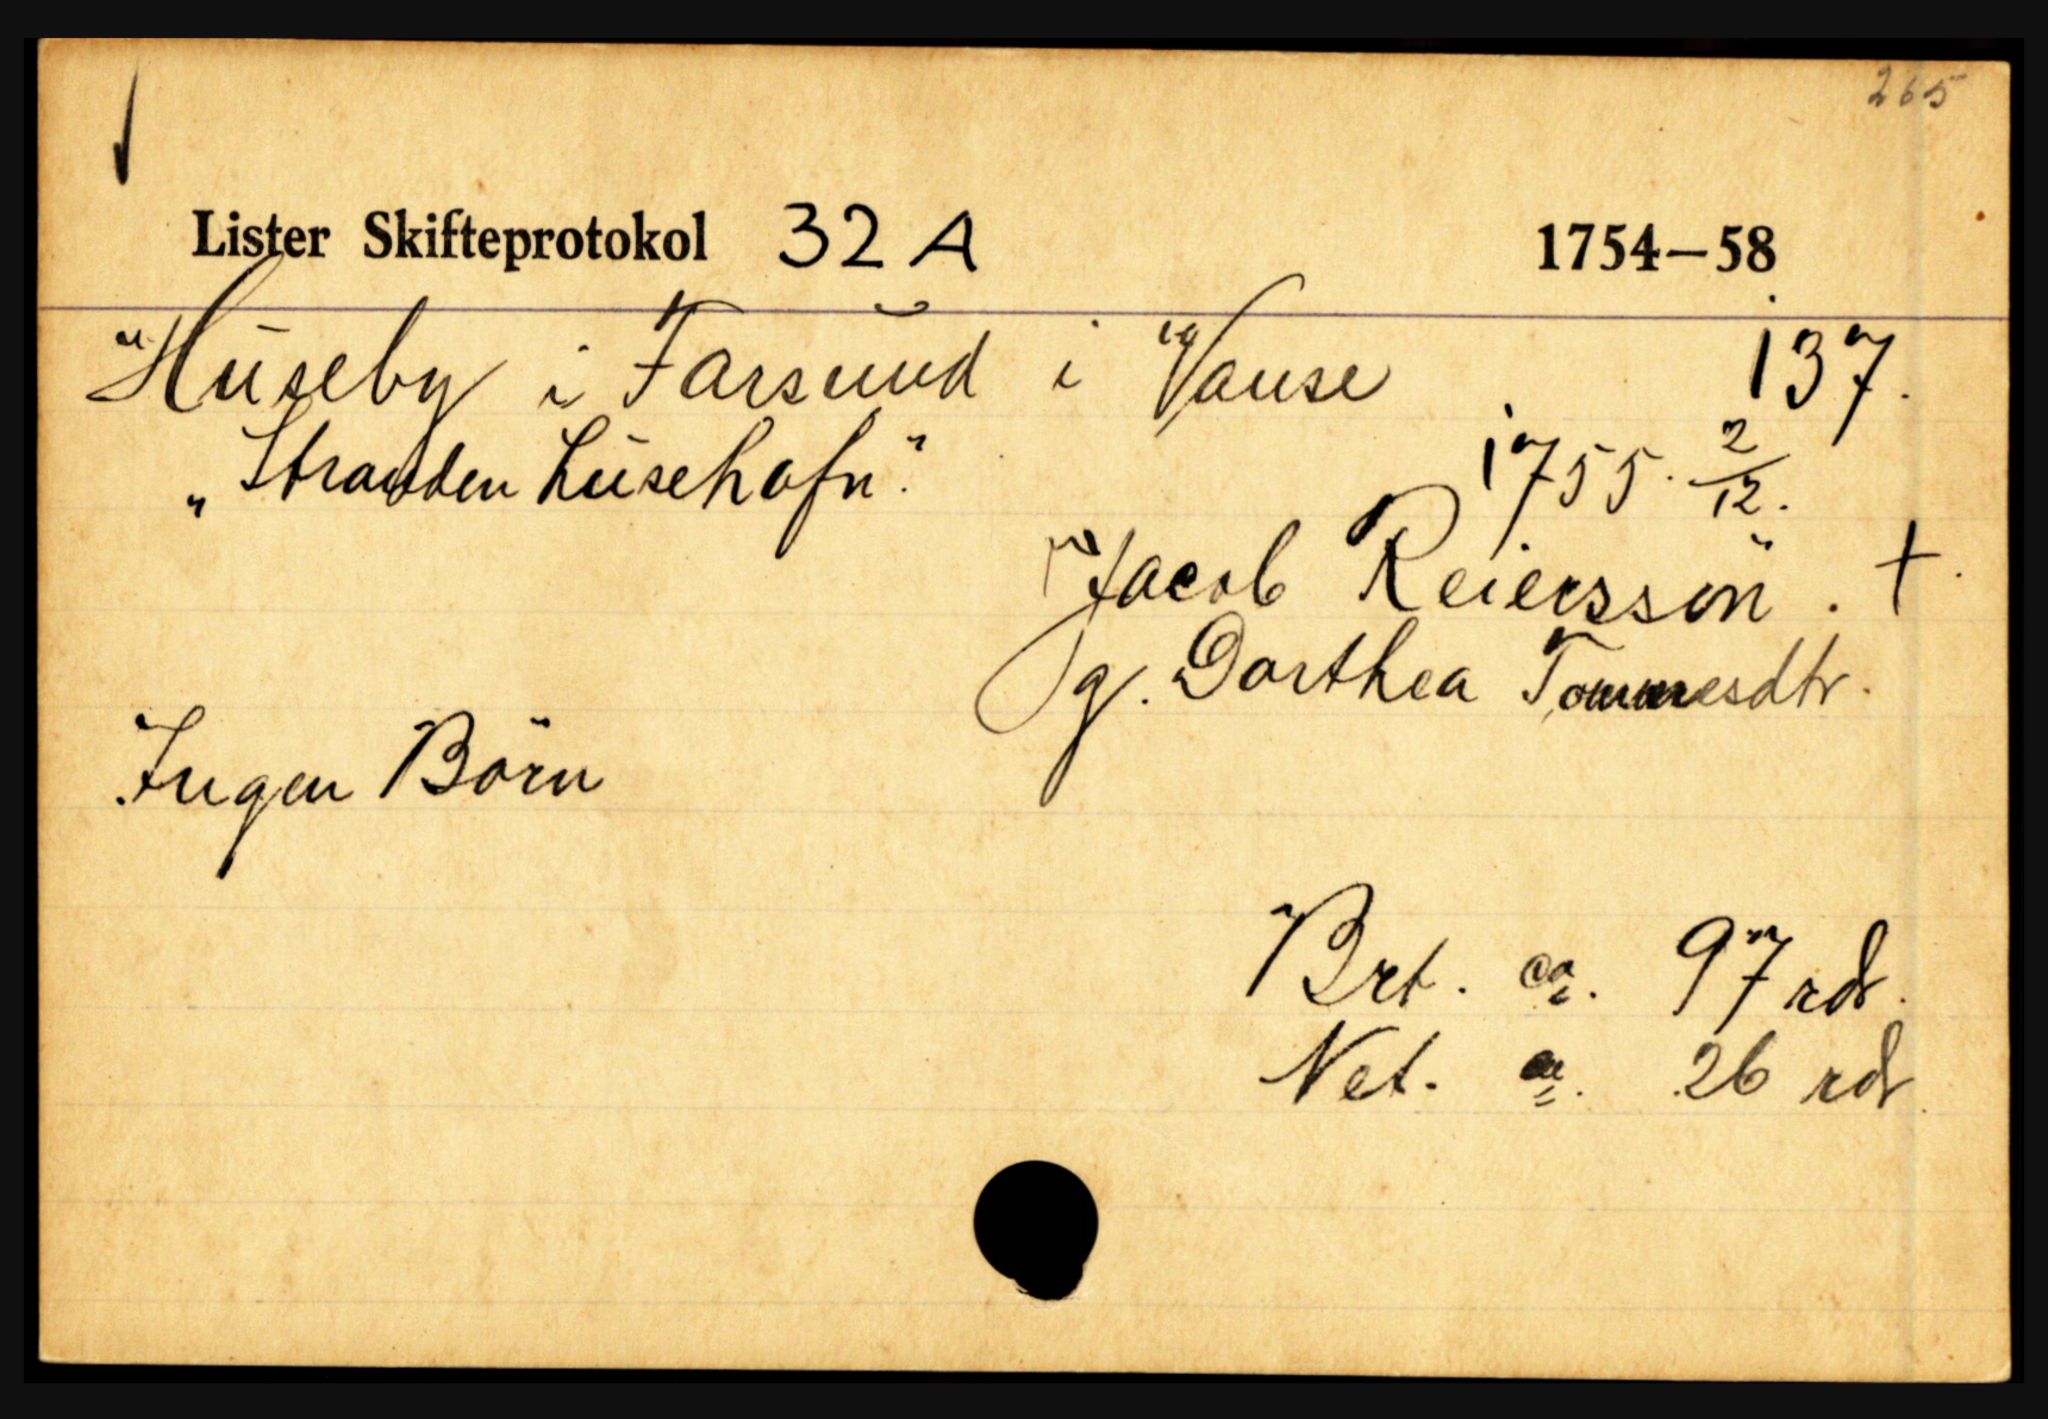 265
Lister Skifteprotokol 32 A 1754–58
Huseby i Farsund i Vanse 137.
„Stranden Lusehafn." 1755. 2/12.
Jacob Reiersson . +
g. Dorthea Tommesdtr.
Ingen Börn
Brt. ca. 97 rdr.
Net. ca. 26 rdr.